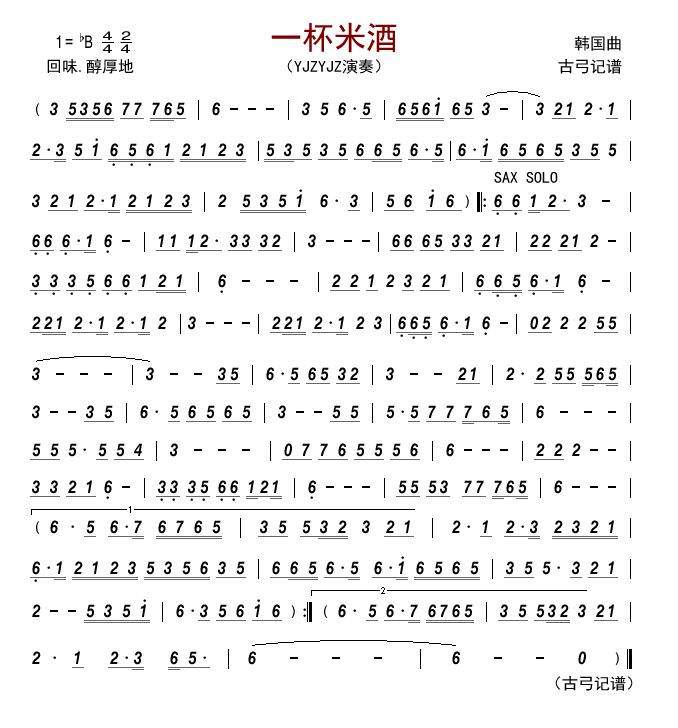 一杯米酒
1=♭B 4/4 2/4
回味.醇厚地
（YJZYJZ演奏）
韩国曲
古弓记谱
( 3 5356 77 765 | 6 - - - | 3 5 6·5 | 6561 65 3 - | 3 21 2·1 |
2·3 51 6561 2123 | 535356656·5 | 6·1 6565 355 |
SAX SOLO
3 21 2·1 2123 | 2 5351 6·3 | 56 16 ) |: 6612· 3 - |
66 6·1 6 - | 11 12· 33 32 | 3 - - - | 66 65 33 21 | 22 21 2 - |
33 35 66 121 | 6 - - - | 221 2321 | 665 6·1 6 - |
221 2·1 2·1 2 | 3 - - - | 221 2·1 23 | 665 6·1 6 - | 022 2 55 |
3 - - - | 3 - - 35 | 6·5 65 32 | 3 - - 21 | 2·2 55 565 |
3 - - 35 | 6·5 65 65 | 3 - - 55 | 5·5 77 765 | 6 - - - |
555· 554 | 3 - - - | 0776 5556 | 6 - - - | 222 - - |
3321 6 - | 33 35 66 121 | 6 - - - | 55 53 77 765 | 6 - - - |
1
( 6·5 6·7 6765 | 35 532 3 21 | 2·1 2·3 2321 |
6·1 2123 5356 35 | 665 6·5 6·1 6565 | 355·321 |
2
2 - - 5351 | 6·3 56 16 ) :| ( 6·5 6·7 6765 | 35 532 3 21 |
2·1 2·3 65· | 6 - - - | 6 - - 0 ) |
（古弓记谱）